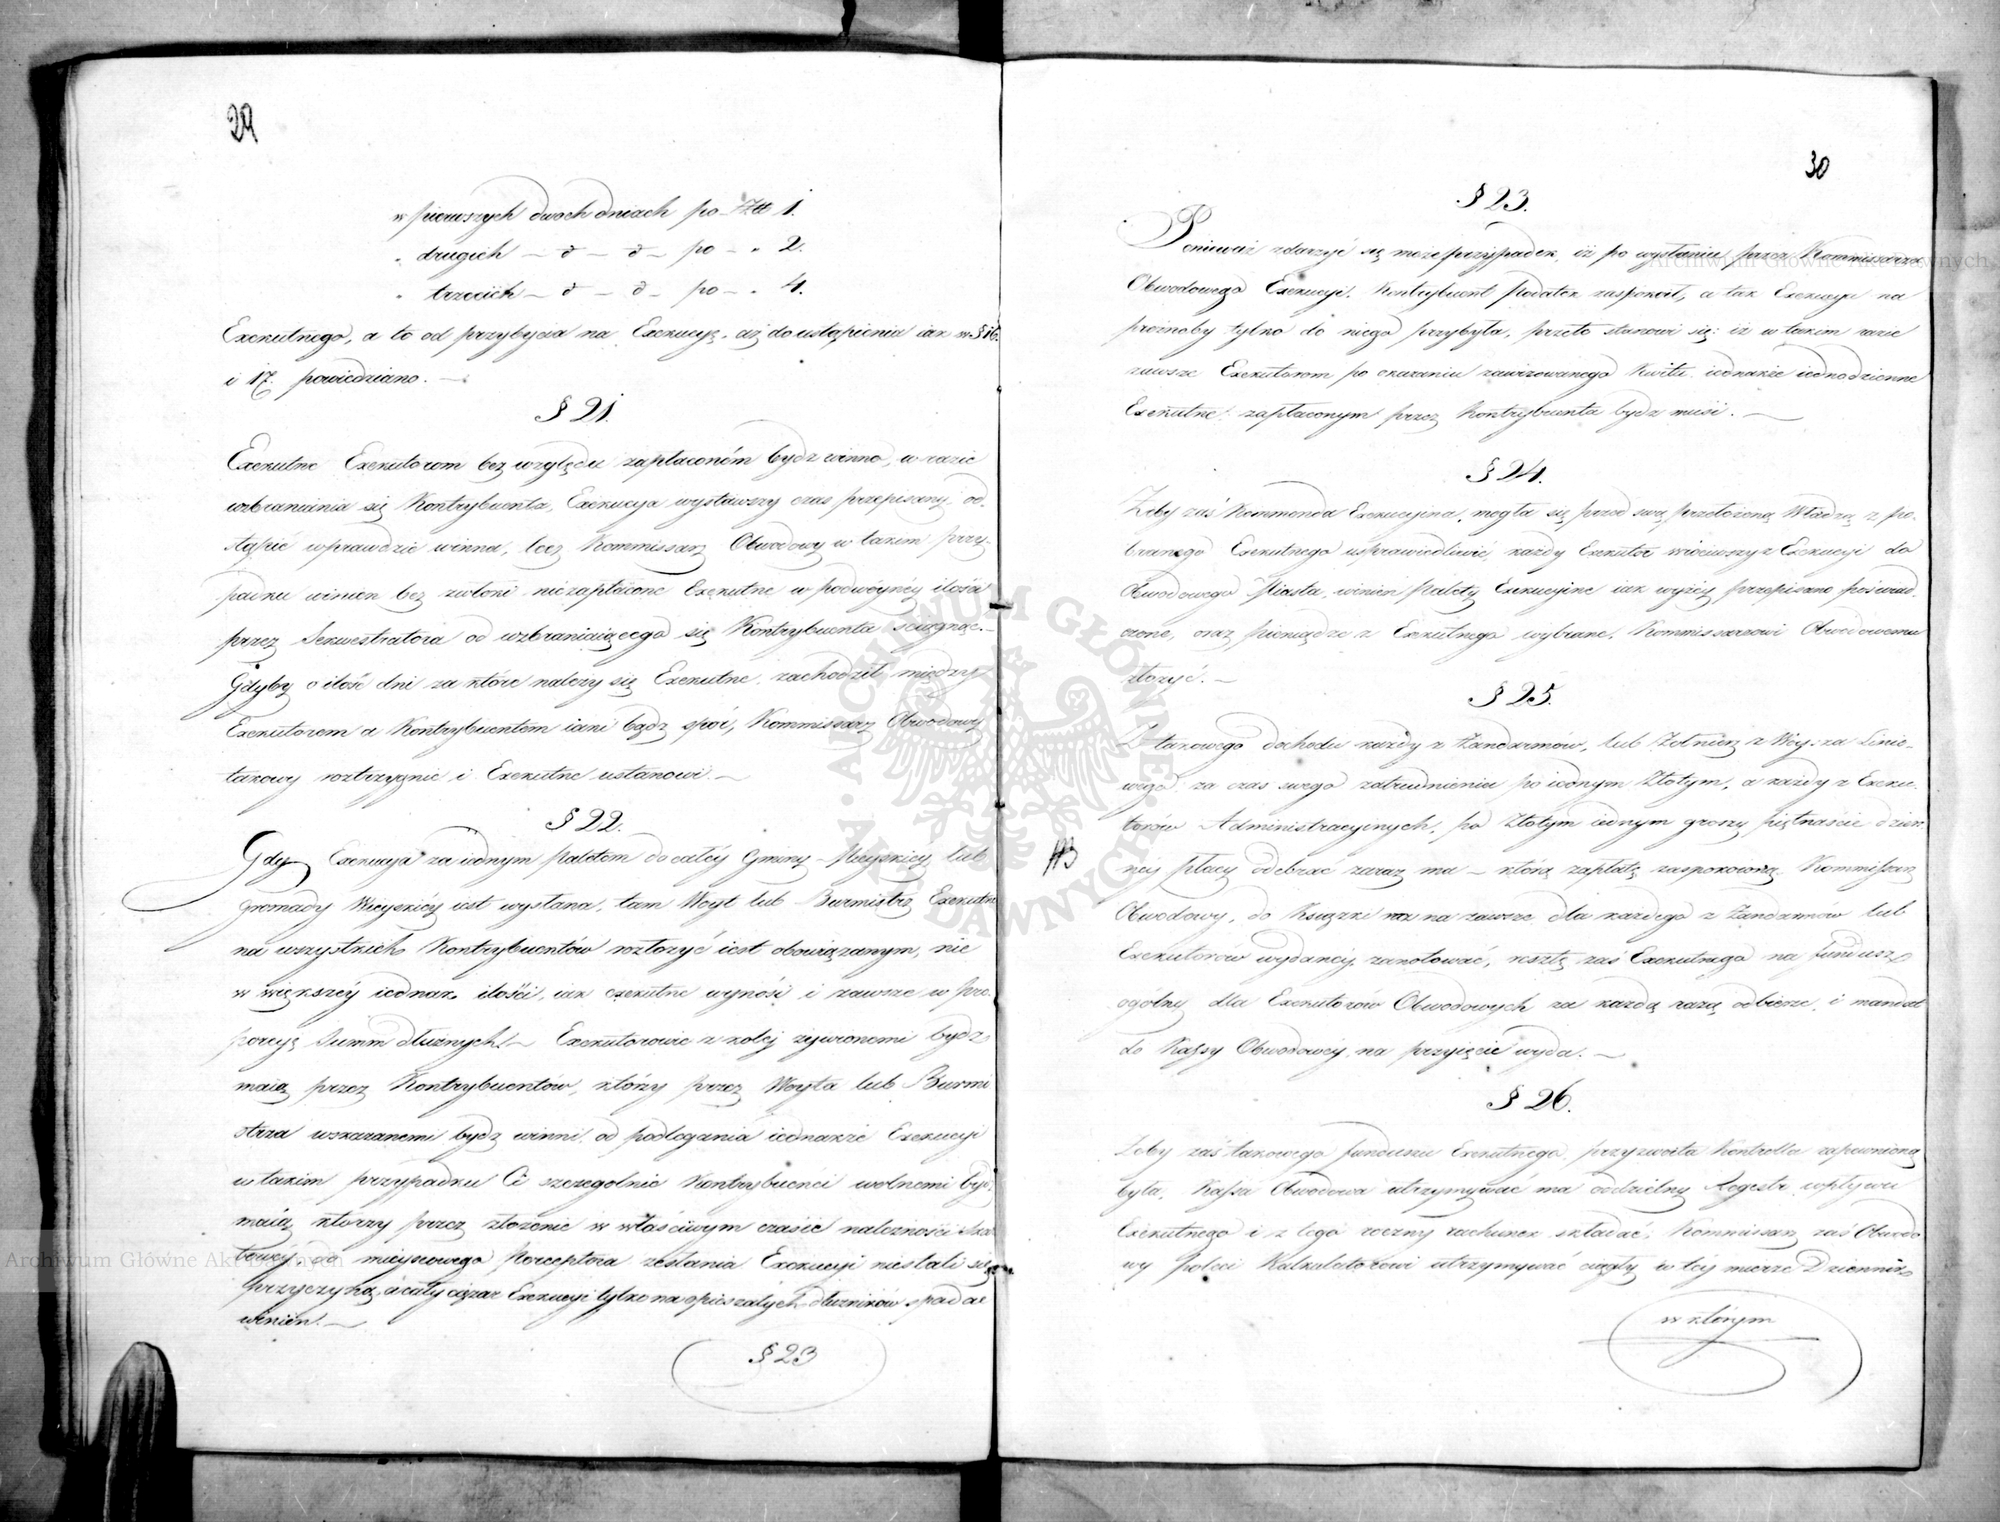 29
w pierwszych dwoch dniach po Złł 1.
„ drugich — d — d — po — „ 2.
„ trzecich — d — d — po — „ 4.
Exekutnego, a to od przybycia na Exekucyę, aż do ustąpienia iak w § 16.
i 17. powiedziano. —
§ 21.
Exekutne Exekutorom bez względu zapłaconém bydź winno, w razie
wzbraniania się Kontrybuenta, Exekucya wystawszy czas przepisany, od-
stąpić wprawdzie winna, lecz Kommissarz Obwodowy w takim przy-
padku winien bez zwłoki niezapłacone Exekutne w podwóynéy ilości
przez Sekwestratora od wzbraniaiącego się Kontrybuenta sciągnąć. —
Gdyby o ilość dni za które należy się Exekutne, zachodził między
Exekutorem a Kontrybuentem iaki bądź spór, Kommissarz Obwodowy
takowy roztrzygnie i Exekutne ustanowi. —
§ 22.
Gdy Exekucya za iednym paletem do całéy Gminy Mieyskiéy lub
gromady Wieyskiéy iest wysłana, tam Woyt lub Burmistrz Exekutne
na wszystkich Kontrybuentów rozłożyć iest obowiązanym, nie
w większéy iednak ilości, iak exekutne wynosi i zawsze w pro-
porcyą Summ dłużnych. — Exekutorowie z koléj żywionemi bydź
maią przez Kontrybuentów, którzy przez Woyta lub Burmi
strza wskazanemi bydź winni, od podlegania iednakże Exekucyi
w takim przypadku Ci szczególnie Kontrybuenci wolnemi bydź
maią, ktorzy przez złożenie w właściwym czasie należności Skar
bowéy do mieyscowego Perceptora zesłania Exekucyi niestali się
przyczyną, a cały ciężar Exekucyi tylko na opieszałych dłużników spadać
winien. —
§ 23
30
§ 23.
Ponieważ zdarzyć się może przypadek, iż po wysłaniu przez Kommissarza
Obwodowego Exekucyi, Kontrybuent Podatek zaspokoił, a tak Exekucya na
próżnoby tylko do niego przybyła, przeto stanowi się: iż w takim razie
zawsze Exekutorom po okazaniu zawizowanego Kwitu, iednakże iednodzienne
Exekutne zapłaconym przez Kontrybuenta bydź musi. —
§ 24.
Żeby zaś Kommenda Exekucyina, mogła się przed swą przełożoną Władzą z po-
branego Exekutnego usprawiedliwić, każdy Exekutor wróciwszy z Exekucyi do
Obwodowego Miasta, winien Palety Exekucyine iak wyżéy przepisano poświad-
czone, oraz pieniądze z Exekutnego wybrane, Kommissarzowi Obwodowemu
złożyć. —
§ 25.
Z takowego dochodu każdy z Żandarmów, lub Żołnierz z Woyska Linio-
wego za czas swego zatrudnienia po iednym Złotym, a każdy z Exeku-
torów Administracyinych, po Złotym iednym groszy piętnaście dzien-
NB
néj płacy odebrać zaraz ma — którą zapłatę zaspokoioną Kommissarz
Obwodowy, do Książki na zawsze dla każdego z Żandarmów lub
Exekutorów wydanéy, zanotować, resztę zaś Exekutnego na fundusz
ogólny dla Exekutorów Obwodowych za każdą razą odbierze, i mandat
do Kassy Obwodowéy na przyięcie wyda. —
§ 26.
Żeby zaś takowego funduszu Exekutnego, przyzwoita Kontrolla zapewnioną
była, Kassa Obwodowa utrzymywać ma oddzielny Regestr wpływu
Exekutnego i z tego roczny rachunek składać, Kommissarz zaś Obwodo
wy poleci Kalkulatorowi utrzymywać ciągły w téj mierze Dziennik
w którym
Archiwum Główne Akt Dawnych
ARCHIWUM GŁÓWNE AKT DAWNYCH